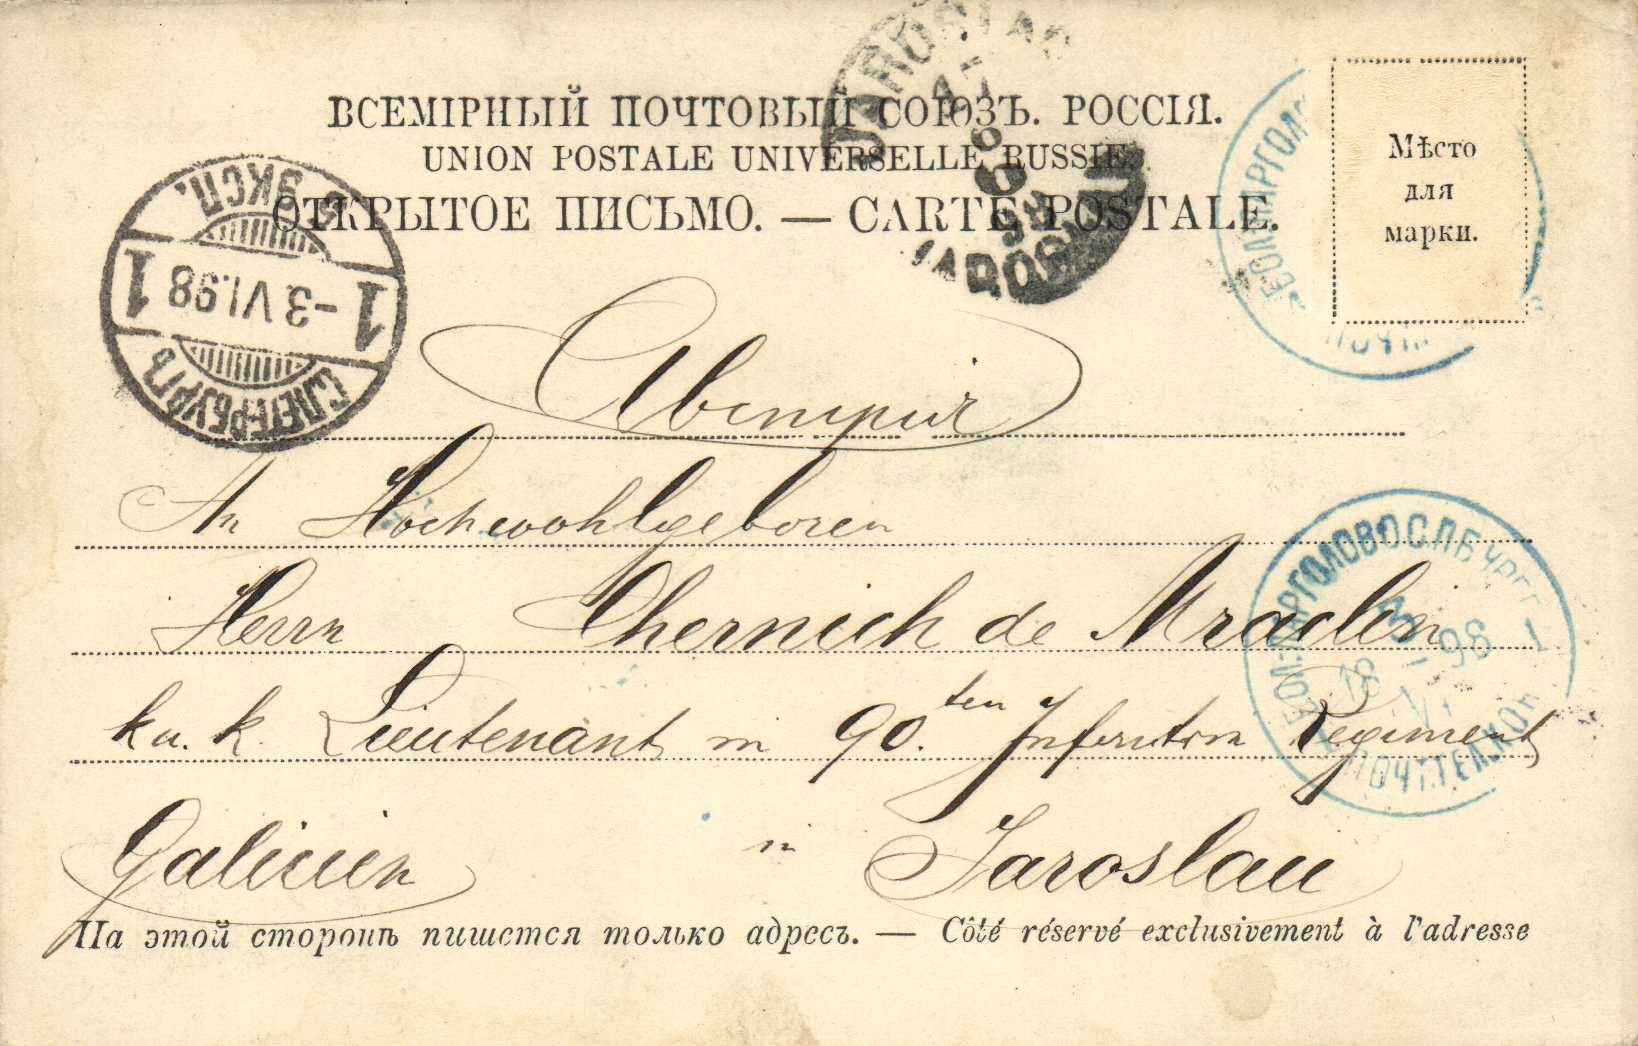 ВСЕМІРНЫЙ ПОЧТОВЫЙ СОЮЗЪ. РОССІЯ.
UNION POSTALE UNIVERSELLE RUSSIE.
ОТКРЫТОЕ ПИСЬМО. — CARTE POSTALE.
Мѣсто
для
марки.
JAROSLAU
С.ПЕТЕРБУРГЪ
1 -3.VI.98 1
ЭКСП.
An Hochwohlgeboren
Herrn Chernich de Mraclin
k u. k. Lieutenant in 90.ten Infanterie Regiment
Galicien in Jaroslau
На этой сторонѣ пишется только адресъ. — Côté réservé exclusivement à l'adresse